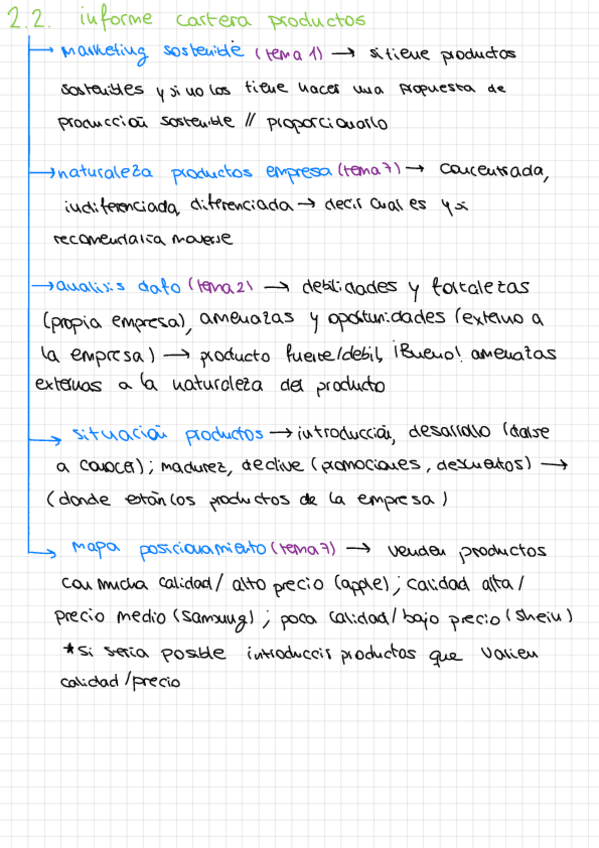 2.2. informe cartera productos
→ marketing sostenible (tema 1) → si tiene productos
sostenibles y si no los tiene hacer una propuesta de
producción sostenible // proporcionarlo
→ naturaleza productos empresa (tema 7) → concentrada,
indiferenciada, diferenciada → decir cual es y si
recomendaría moverse
→ analisis dafo (tema 2) → debilidades y fortalezas
(propia empresa), amenazas y oportunidades (externo a
la empresa) → producto fuerte/debil, ¡Bueno! amenazas
externas a la naturaleza del producto
→ situación productos → introducción, desarrollo (darse
a conocer); madurez, declive (promociones, descuentos) →
(donde están los productos de la empresa)
→ mapa posicionamiento (tema 7) → venden productos
con mucha calidad / alto precio (apple); calidad alta /
precio medio (samsung); poca calidad / bajo precio (shein)
*si seria posible introduccir productos que varien
calidad / precio